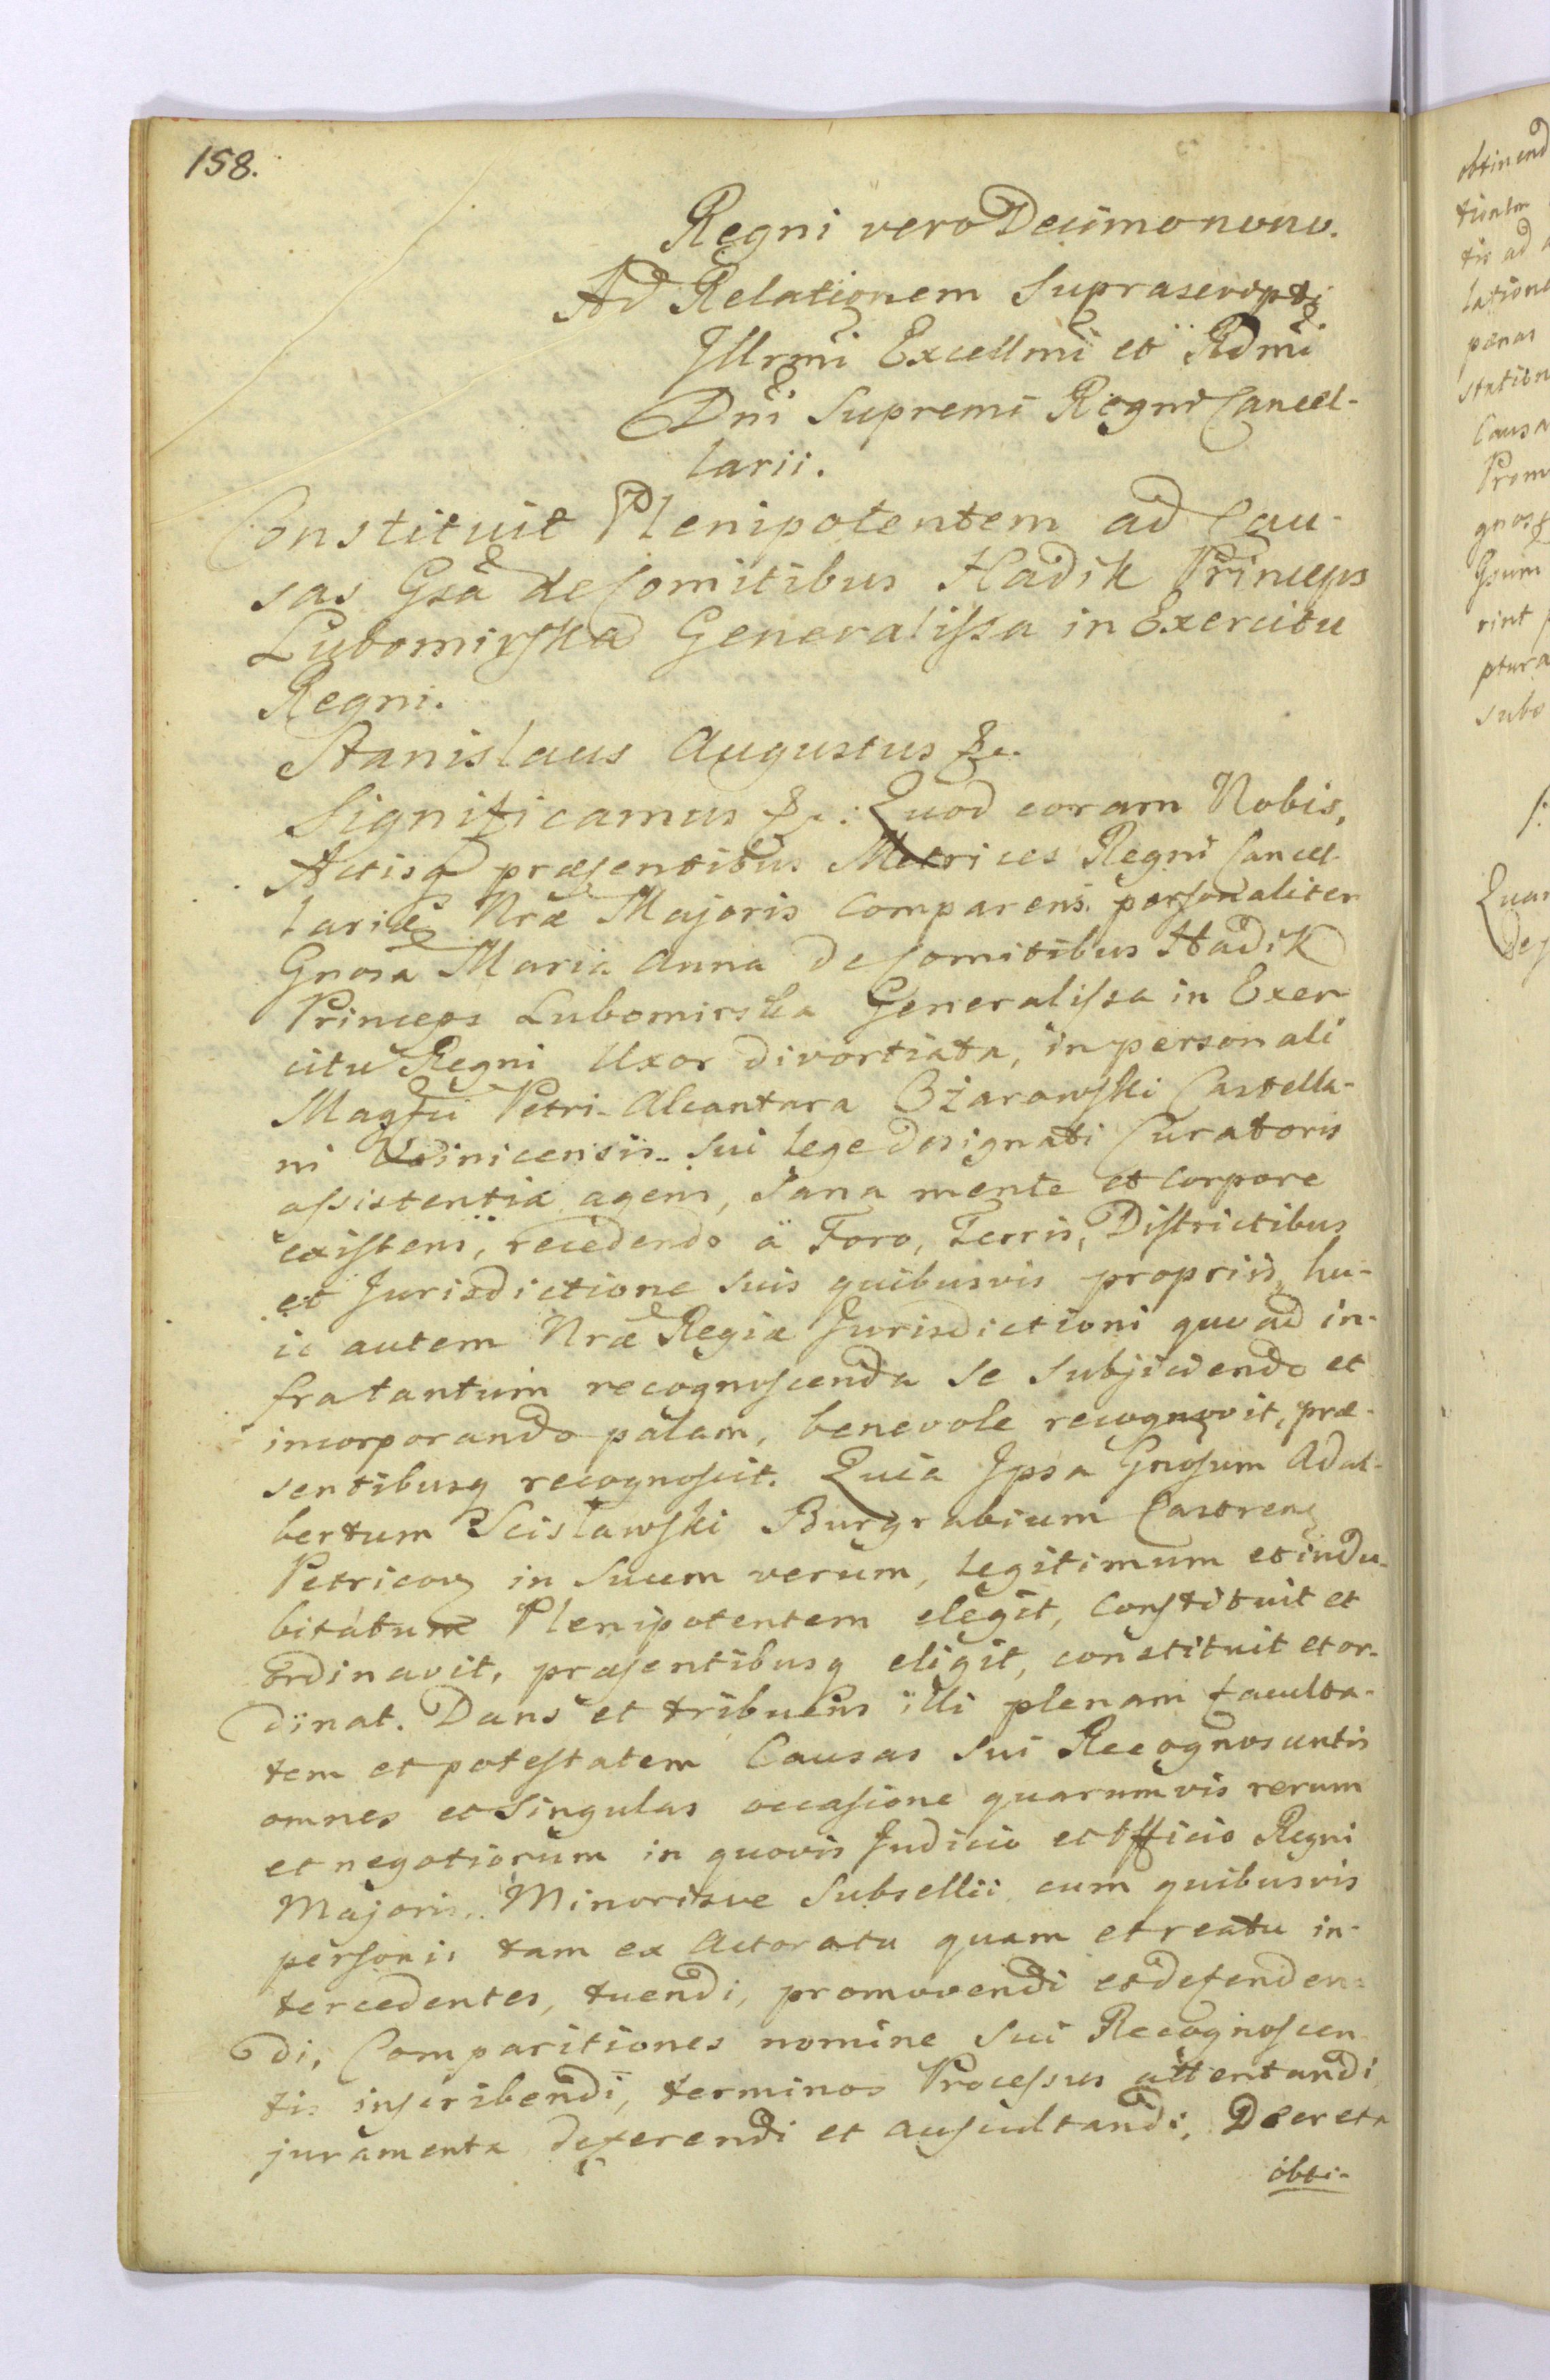 158.
Regni vero Decimonono.
Ad Relationem Suprascripti
Illrmi Excellmi et Rdmi
Dni Supremi Regni Cancel-
larii.
Constituit Plenipotentem ad Cau-
sas Gsa de Comitibus Hadik Princeps
Lubomirska Generalissa in Exercitu
Regni.
Stanislaus Augustus &c.
Significamus &c. Quod coram Nobis,
Actisq præsentibus Metrices Regni Cancel-
lariæ Nræ Majoris Comparens personaliter
Gnosa Maria Anna de Comitibus Hadik
Princeps Lubomirska Generalissa in Exer
citu Regni Uxor divortiata, in personali
Magfci Petri Alcantara Ożarowski Castella-
ni Woinicensis sui lege designati Curatoris
assistentia agens, sana mente et corpore
existens, recedendo a Foro, Terris, Districtibus
et Jurisdictione suis quibusvis propriis, hu-
ic autem Nræ Regiæ Jurisdictioni quo ad in-
fra tantum recognoscenda se subjiciendo et
incorporando palam, benevole recognovit, præ-
sentibusq recognoscit. Quia Ipsa Gnosum Adal-
bertum Scisławski Burgrabium Castren
Petricov in suum verum, legitimum et indu-
bitatum Plenipotentem elegit, constituit et
ordinavit, præsentibusq eligit, constituit et or-
dinat. Dans et tribuens illi plenam faculta-
tem et potestatem Causas sui Recognoscentis
omnes et singulas occasione quarumvis rerum
et negotiorum in quovis Judicio et Officio Regni
Majoris Minorisve Subsellii cum quibusvis
personis tam ex Actoratu quam et reatu in-
tercedentes, tuendi, promovendi et defenden-
di, Comparitiones nomine sui Recognoscen
tis inscribendi, terminos Processus attentandi
juramenta deferendi et auscultandi, Decreta
obti-
obtinend
tis ad
latione
pænas
Causa
Prom
Gsum
rint
ptura
subo
Quan